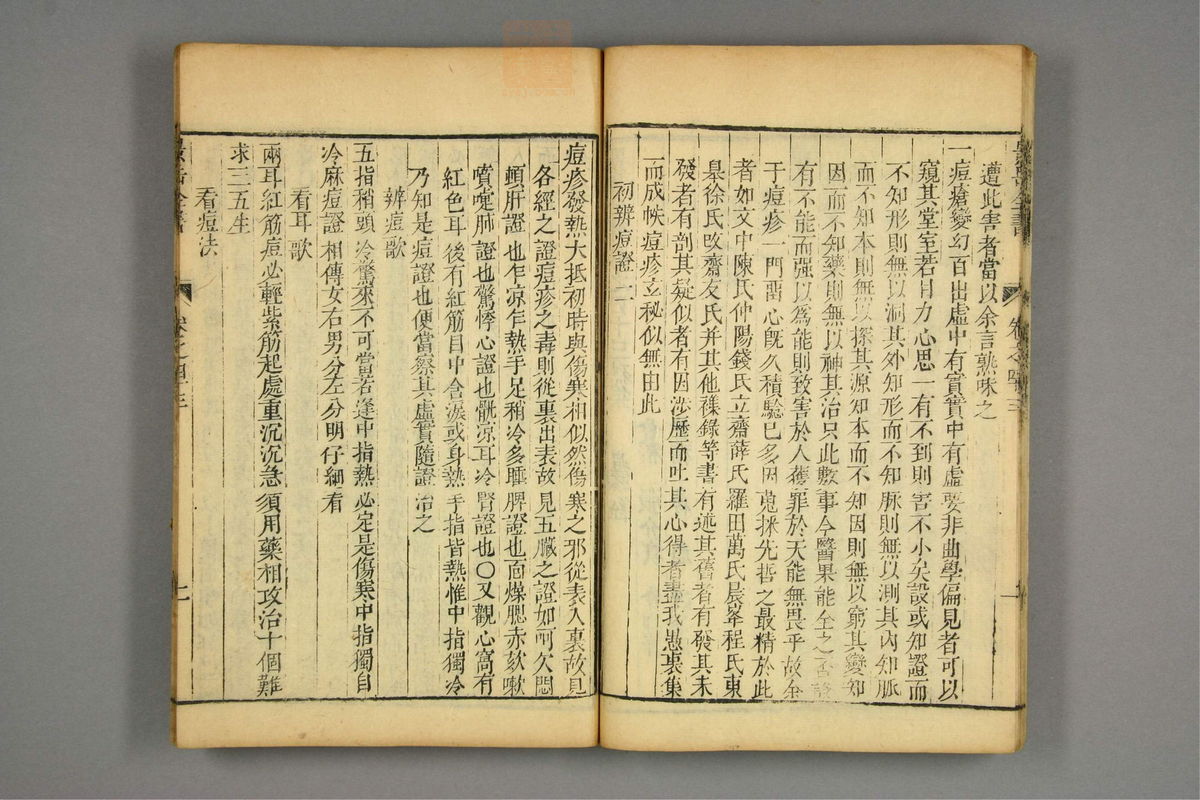 遭此害者當以余言熟味之
一痘瘡變幻百出虛中有實實中有虛要非曲學偏見者可以
窺其堂室若目力心思一有不到則害不小矣設或知證而
不知形則無以洞其外知形而不知脉則無以測其內知脉
而不知本則無以探其源知本而不知因則無以窮其變知
因而不知藥則無以神其治只此數事今醫果能全之否證
有不能而强以為能則致害於人獲罪於天能無畏乎故余
于痘疹一門畱心旣久積驗已多因蒐採先哲之最精於此
者如文中陳氏仲陽錢氏立齋薛氏羅田萬氏晨峯程氏東
臯徐氏改齋友氏并其他襍錄等書有述其舊者有發其未
發者有剖其疑似者有因涉歷而吐其心得者盡我愚衷集
而成帙痘疹立秘似無由此
初辨痘證二
痘疹發熱大抵初時與傷寒相似然傷寒之邪從表入裏故見
各經之證痘疹之毒則從裏出表故見五臟之證如呵欠悶
頓肝證也乍凉乍熱手足稍冷多睡脾證也面燥腮赤欬嗽
噴嚏肺證也驚悸心證也骩凉耳冷腎證也○又觀心窩有
紅色耳後有紅筋目中含淚或身熱手指皆熱惟中指獨冷
乃知是痘證也便當察其虛實隨證治之
辨痘歌
五指稍頭冷驚來不可當若逢中指熱必定是傷寒中指獨自
冷麻痘證相傳女右男分左分明仔細看
看耳歌
兩耳紅筋痘必輕紫筋起處重沉沉急須用藥相攻治十個難
求三五生
看痘法